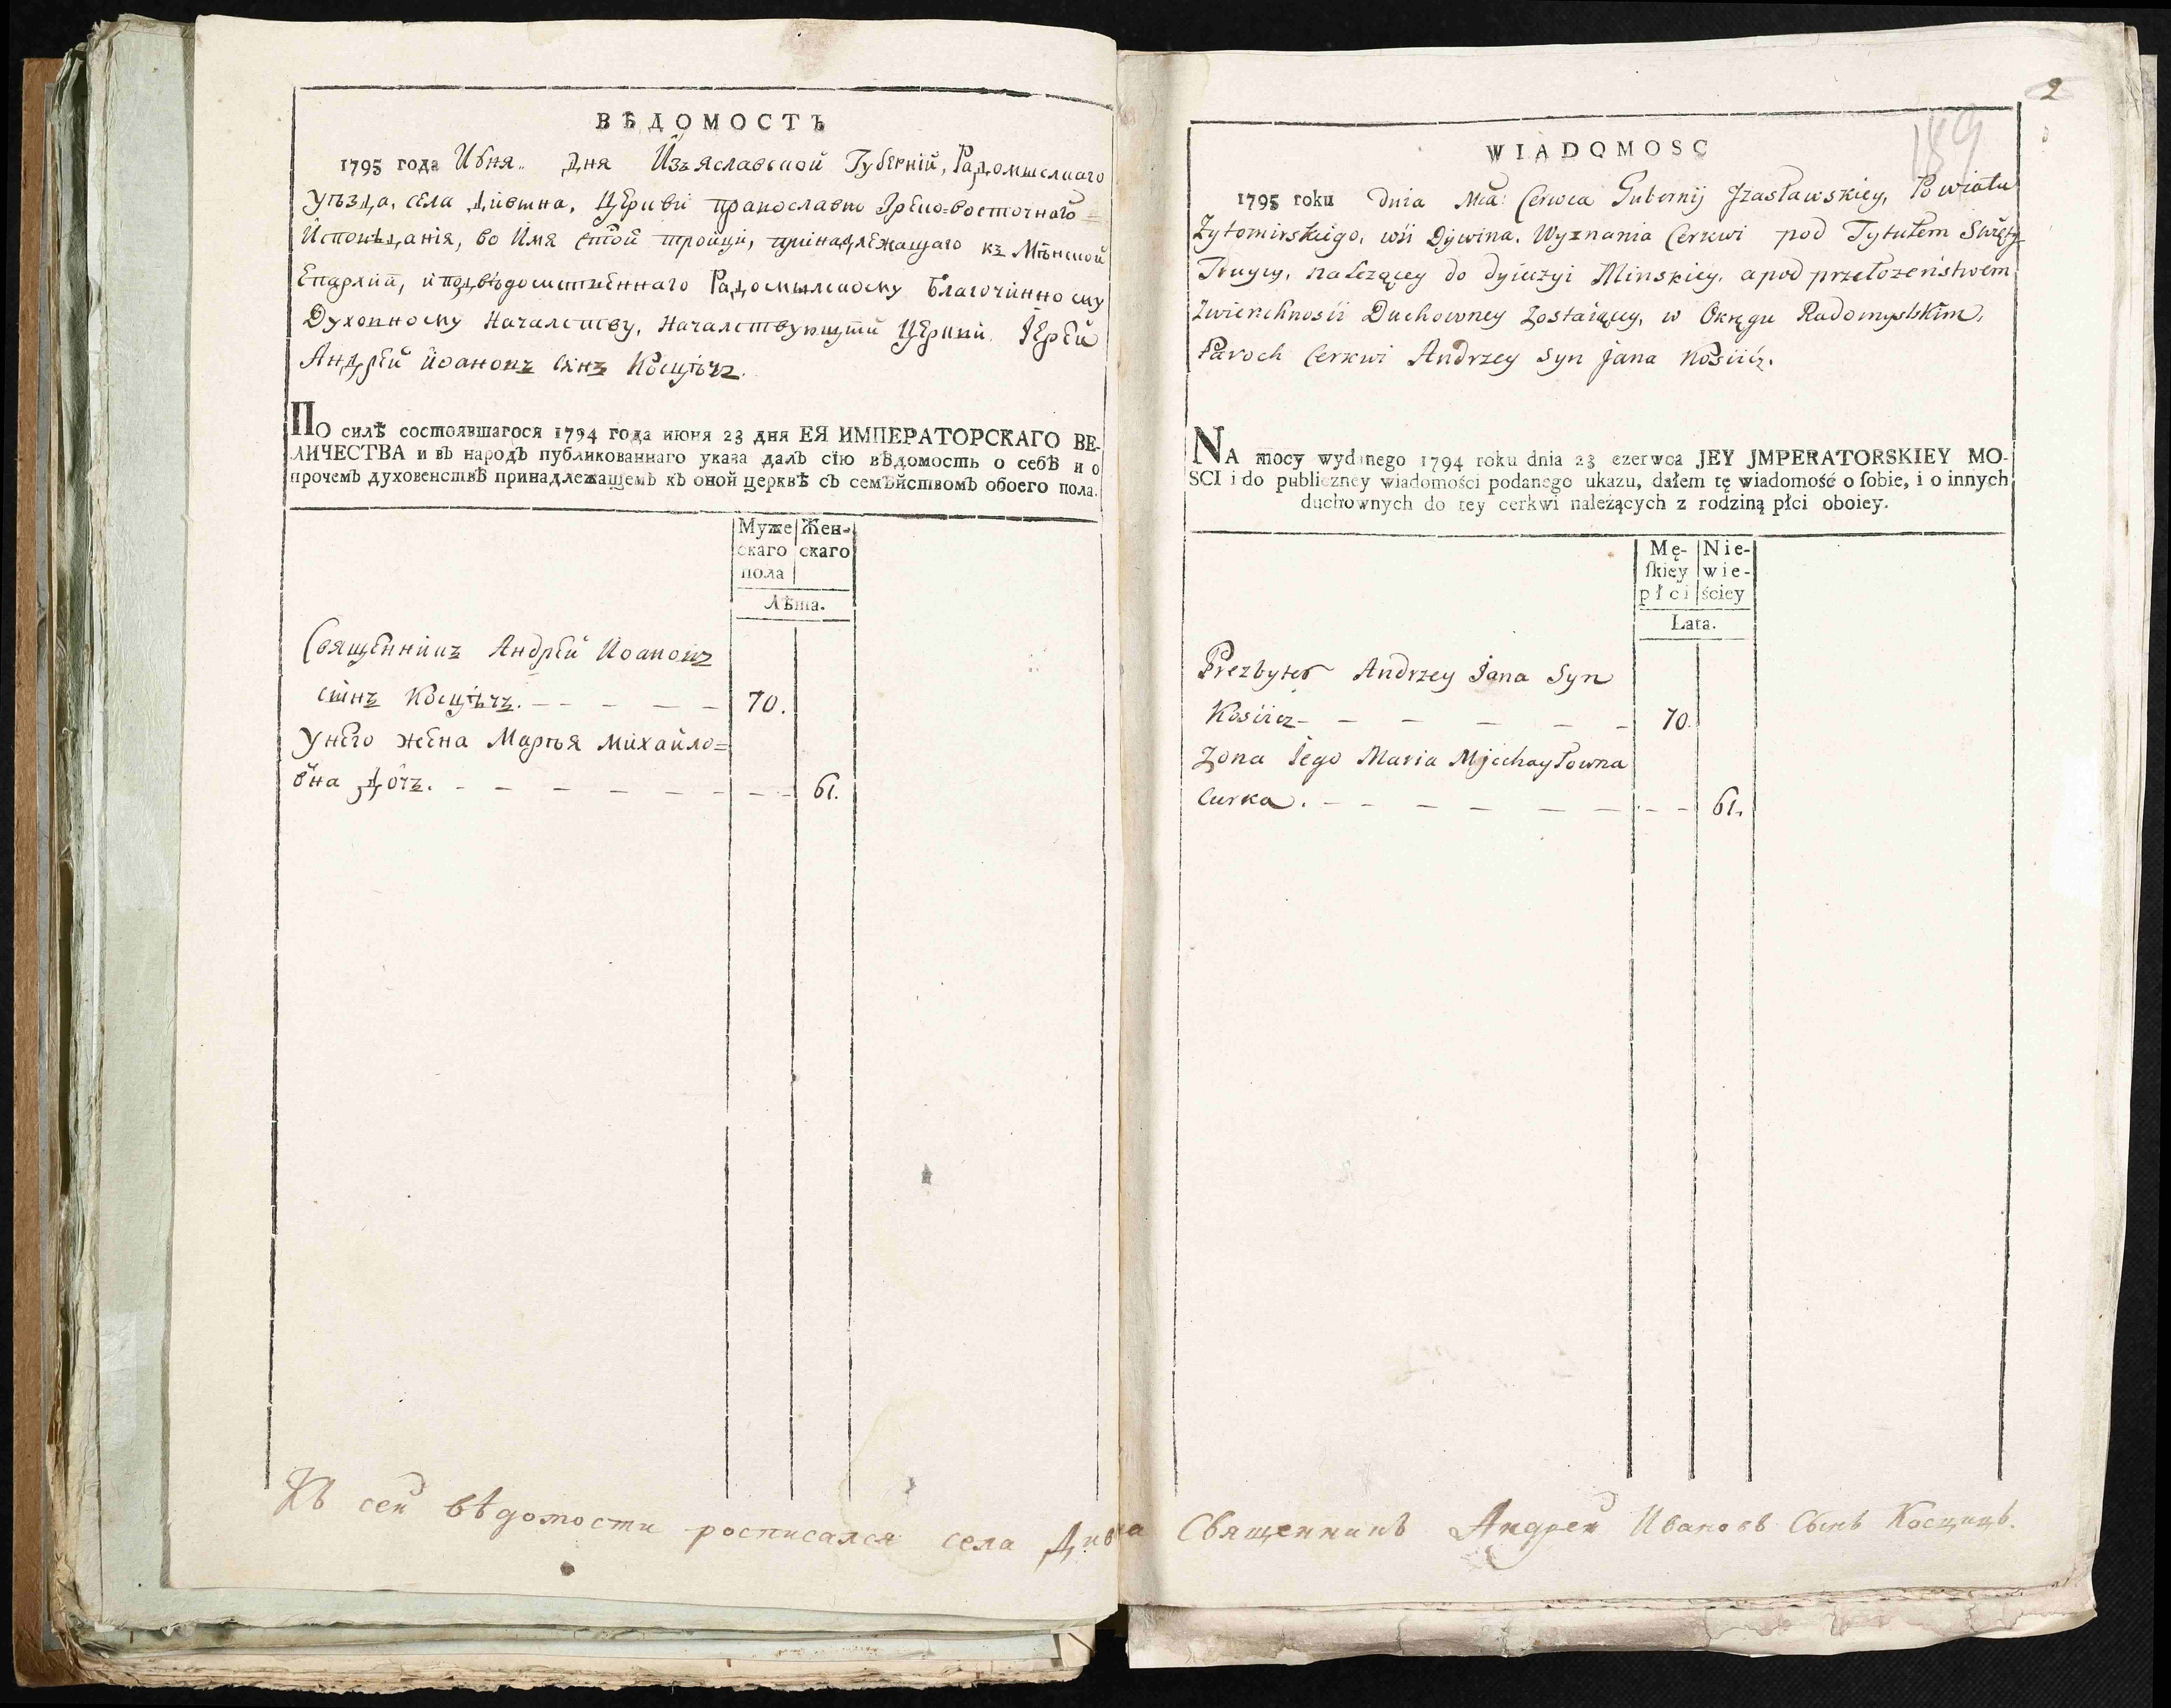 ВѢДОМОСТЬ
1795 года Июня дня Изъяславской Губерніи, Радомыслкаго
Уѣзда, села Дивина, Церкви православно Греко=восточнаго=
Исповѣданія, во Имя стой тройци, принадлежащаго къ Мѣнской
Епархии, и подвѣдомственнаго Радомыслскому Благочинному
Духовному Началству, Началствующий Церкви Іерей
Андрей Иоановъ синъ Косцѣчъ.
ПО силѣ состоявшагося 1794 года июня 23 дня ЕЯ ИМПЕРАТОРСКАГО ВЕ-
ЛИЧЕСТВА и въ народъ публикованнаго указа далъ сїю вѣдомость о себѣ и о
прочемъ духовенствѣ принадлежащемъ къ оной церквѣ съ семѣйствомъ обоего пола.
Муже Жен-
скаго скаго
пола
Лѣта.
Священникъ Андрей Иоановъ
синъ Косцѣчъ. - - - - - 70.
Унего жена Марѣя михайло=
вна Дочъ. - - - - - - - - 61.
Къ сей вѣдомости росписался села Дивна Священникъ Андрей Ивановъ Сынъ Косцицъ.
2
189
WIADOMOSC
1795 roku Dnia Mca: Cerwca Gubernij Jzasławskiey, Powiatu
Zytomirskiego, wsi Dywina. Wyznania Cerkwi pod Tytułem Swięty
Truycy, nalezącey do dyiecezyi Minskiey, a pod przełozeństwem
Zwierzchnosii Duchowney Zostaiącey, w Okręgu Radomyslskim,
Paroch Cerkwi Andrzey Syn Jana Kosiicz.
NA mocy wydanego 1794 roku dnia 23 czerwca JEY JMPERATORSKIEY MO-
SCI i do publiczney wiadomości podanego ukazu, dałem tę wiadomość o ſobie, i o innych
duchownych do tey cerkwi należących z rodziną płci oboiey.
Mę- Nie-
ſkiey wie-
płci ściey
Lata.
Prezbyter Andrzey Jana Syn
Kosiicz - - - - - - 70.
Zona Jego Maria Mjichayłowna
Curka. - - - - - - - - - 61.